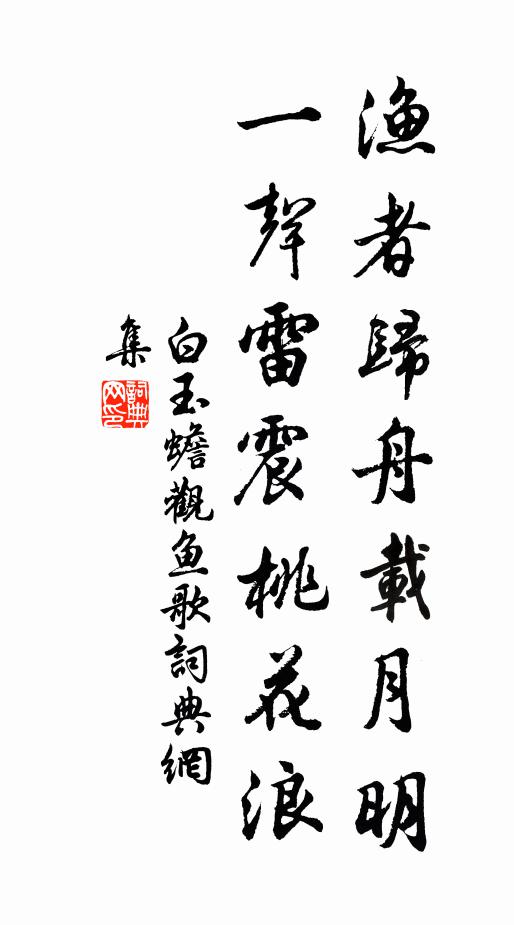 漁者歸舟載月明
一聲雷震桃花浪
白玉蟾觀魚歌詞典網
集
詞典網印